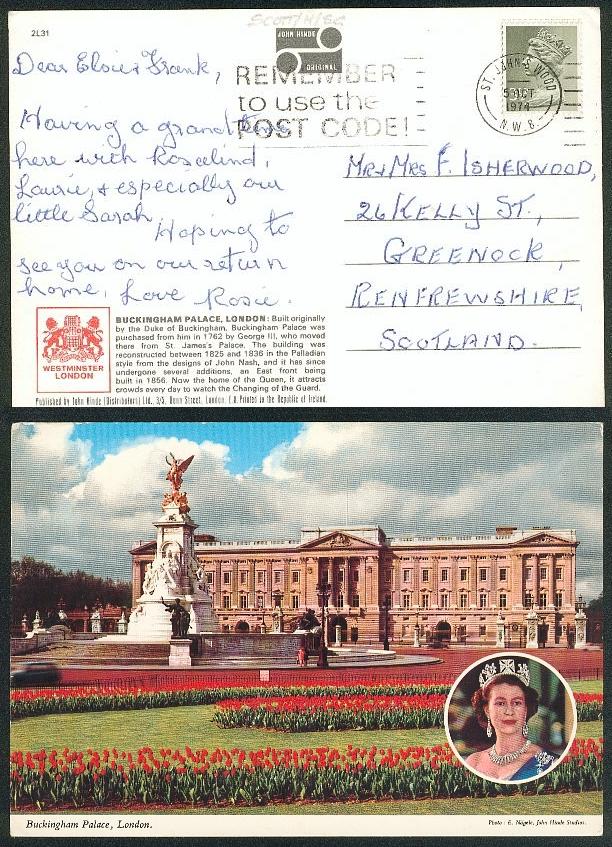 SCOTT/H/SG
2L31
JOHN HINDE
ORIGINAL
REMEMBER
to use the
POST CODE!
ST. JOHN'S WOOD
5 OCT
1974
N.W.8.
Dear Elsie & Frank,
Having a grand time
here with Rosalind,
Laurie, & especially our
little Sarah.
Hoping to
see you on our return
home, Love Rosie.
Mr & Mrs F. ISHERWOOD,
26 KELLY ST.,
GREENOCK,
RENFREWSHIRE,
SCOTLAND.
WESTMINSTER
LONDON
BUCKINGHAM PALACE, LONDON: Built originally
by the Duke of Buckingham, Buckingham Palace was
purchased from him in 1762 by George III, who moved
there from St. James's Palace. The building was
reconstructed between 1825 and 1836 in the Palladian
style from the designs of John Nash, and it has since
undergone several additions, an East front being
built in 1856. Now the home of the Queen, it attracts
crowds every day to watch the Changing of the Guard.
Published by John Hinde (Distributors) Ltd., 3/5, Denn Street, London. Printed in the Republic of Ireland.
Buckingham Palace, London.
Photo: E. Nägele, John Hinde Studios.